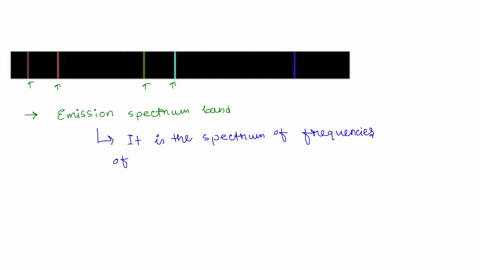 → Emission spectrum band
↳ It is the spectrum of frequencies
of